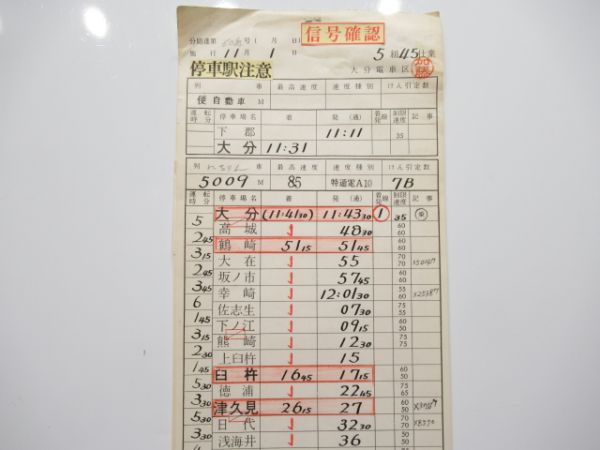 信号確認
分鉄運第 号( 月 日)
施行 11月 1日 5組45仕業
停車駅注意 大分電車区 加藤
列 車 最高速度 速度種別 けん引定数
便自動車 M
運転時分 停車場名 着 発(通) 着発線 制限速度 記事
下郡 11:11 35
大分 11:31
列 にちりん 車 最高速度 速度種別 けん引定数
5009 M 85 特通電A10 7B
運転時分 停車場名 着 発(通) 着発線 制限速度 記事
大分 (11:41 30) 11:43 30 1 35
5
高城 48 30 60 60
2 45
鶴崎 51 15 51 45 60
3 15
大在 55 70 70
2 45
坂ノ市 57 45 60
3 45
幸崎 12:01 30 55 60
6
佐志生 07 30
1 45
下ノ江 09 15
3 15
熊崎 12 30 75
2 30
上臼杵 15
1 45
臼杵 16 45 17 15 60 50
5 30
徳浦 22 45 75 65
3 30
津久見 26 15 27
5 30
日代 32 30
3 30
浅海井 36